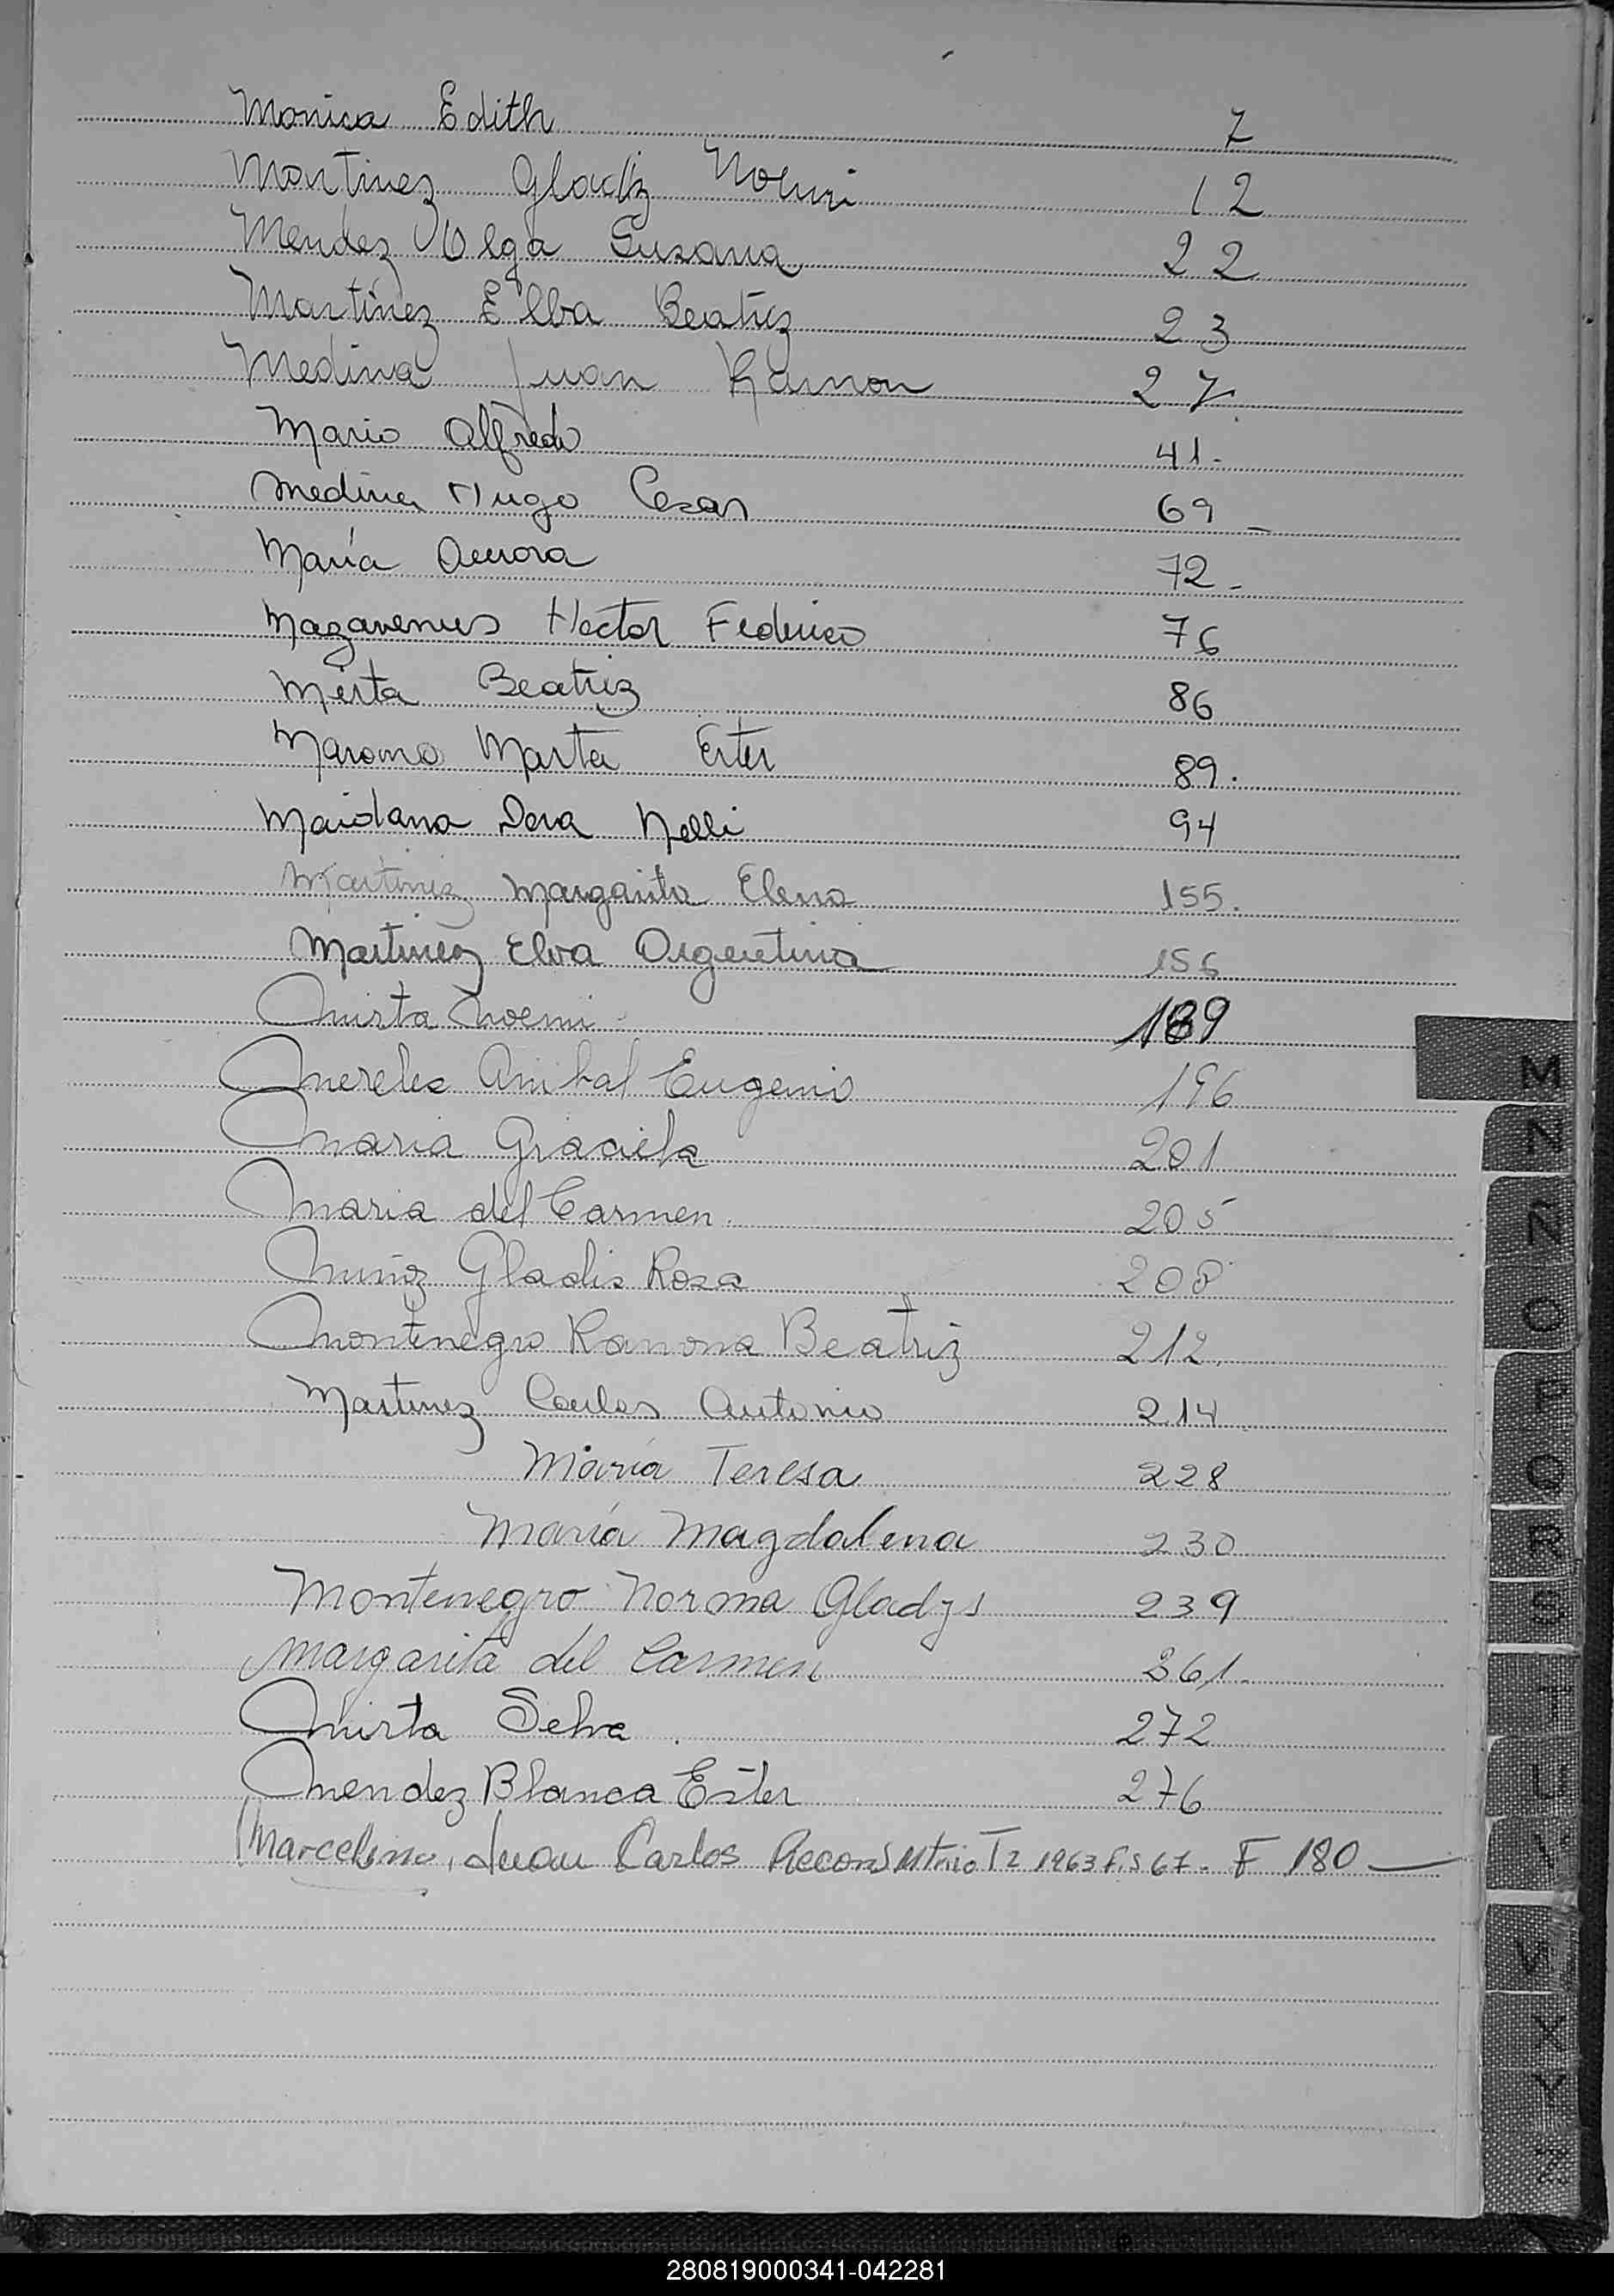 Monica Edith 7
Martinez Gladiz Noemi 12
Mendez Olga Susana 22
Martínez Elba Beatriz 23
Medina Juan Ramon 27
Mario Alfredo 41-
Medina Hugo Cesar 69-
María Aurora 72-
Hector Federico 76
Mirta Beatriz 86
Maromo Marta Ester 89.
Maidana Dora Nelli 94
Martinez Margarita Elena 155.
Martinez Elva Argentina 156
Mirta Noemi 189
Mereles Anibal Eugenio 196
Maria Graciela 201
Maria del Carmen 205
Muñoz Gladis Rosa 208
Montenegro Ramona Beatriz 212.
Martinez Carlos Antonio 214
María Teresa 228
María Magdalena 230
Montenegro Norma Gladys 239
Margarita del Carmen 261-
Mirta Selva 272
Mendez Blanca Ester 276
Marcelino, Juan Carlos Recons Mtrio T2 1963 F.S 67- F 180 —
M
N
Ñ
O
P
Q
R
S
T
U
V
W
X
Y
Z
280819000341-042281